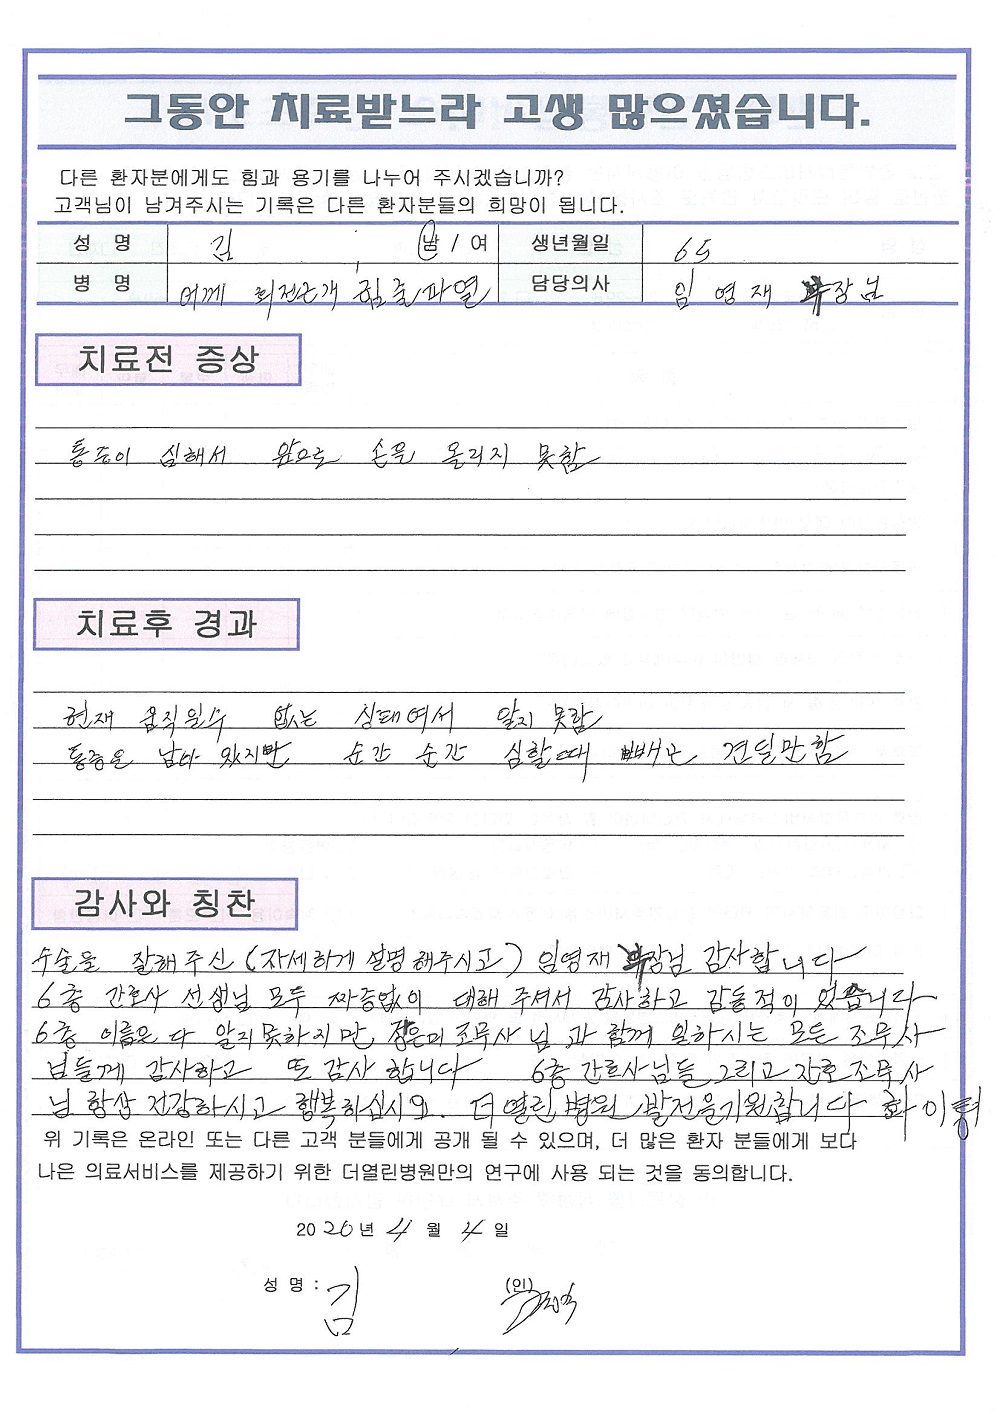 그동안 치료받느라 고생 많으셨습니다.
다른 환자분에게도 힘과 용기를 나누어 주시겠습니까?
고객님이 남겨주시는 기록은 다른 환자분들의 희망이 됩니다.
성 명 김 남 / 여 생년월일 65
병 명 어깨 회전근개 힘줄파열 담당의사 임영재 부장님
치료전 증상
통증이 심해서 앞으로 손을 올리지 못함
치료후 경과
현재 움직일수 없는 상태여서 알지 못함
통증은 남아 있지만 순간 순간 심할때 빼고는 견딜만 함
감사와 칭찬
수술을 잘해주신 (자세하게 설명해주시고) 임영재 부장님 감사합니다
6층 간호사 선생님 모두 짜증없이 대해 주셔서 감사하고 감동적이 었습니다
6층 이름은 다 알지못하지만, 정은미조무사 님 과 함께 일하시는 모든 조무사
님들께 감사하고 또 감사 합니다 6층 간호사님들 그리고 간호조무사
님 항상 건강하시고 행복하십시오. 더열린병원 발전을기원합니다 화이팅
위 기록은 온라인 또는 다른 고객 분들에게 공개 될 수 있으며, 더 많은 환자 분들에게 보다
나은 의료서비스를 제공하기 위한 더열린병원만의 연구에 사용 되는 것을 동의합니다.
2020년 4월 4일
성 명 : 김 (인)